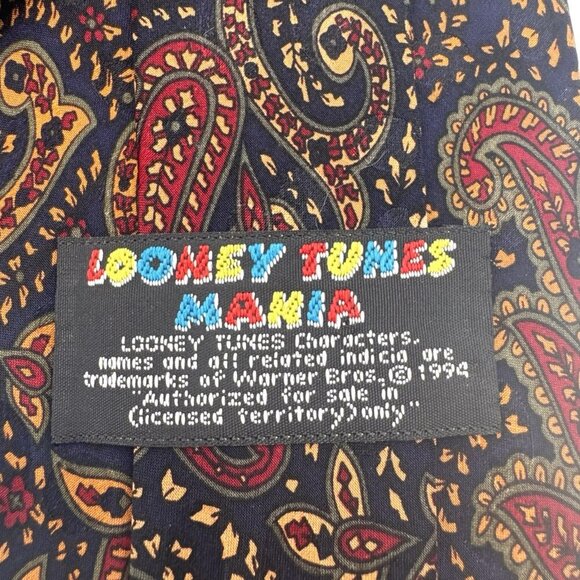 LOONEY TUNES
MANIA
LOONEY TUNES Characters,
names and all related indicia are
trademarks of Warner Bros. © 1994
"Authorized for sale in
(licensed territory) only"